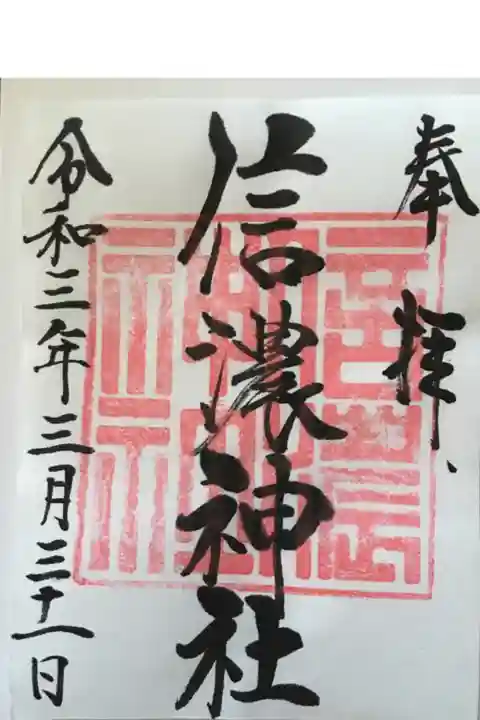 奉拝、
信濃神社
令和三年三月三十一日